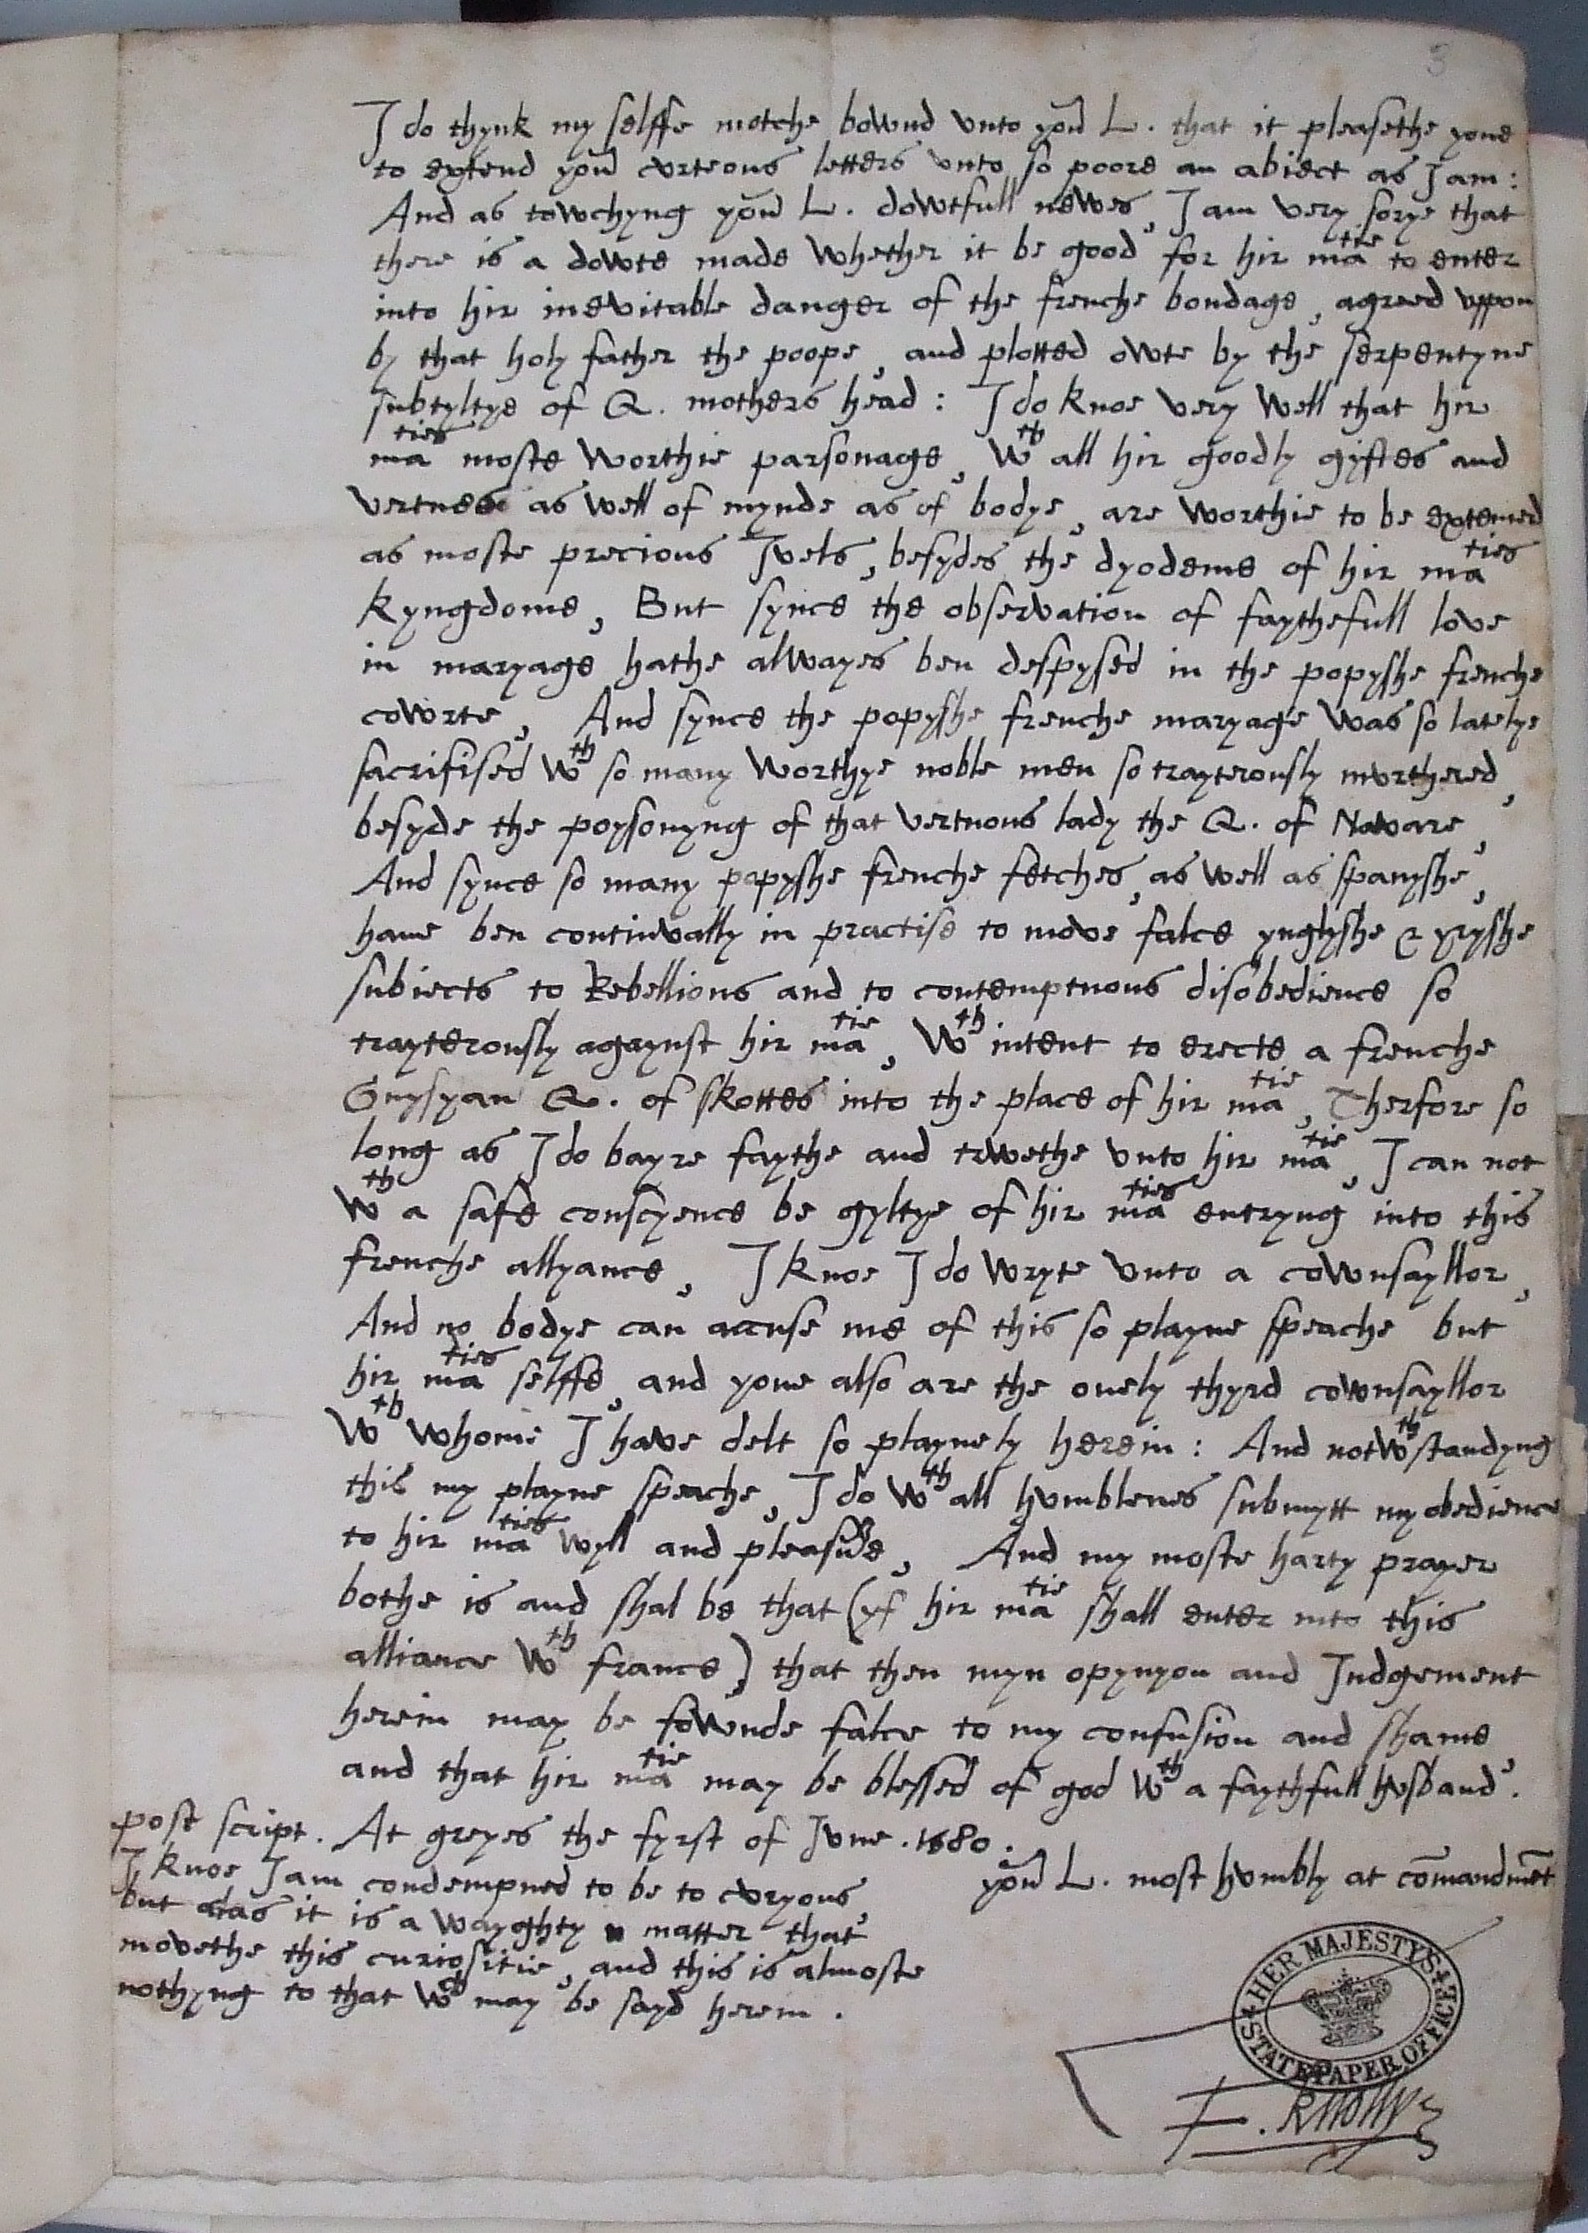 3
I do thynk my selffe motche bownd vnto yor L. that it pleasethe yone
to extend yor curteous letters vnto so poore an abiect as I am:
And as towchyng yor L. dowtfull newes, I am very sorye that
there is a dowte made Whether it be good for hir matie to enter
into hir inevitable danger of the frenche bondage, agreed vppon
by that holy father the poope, and plotted owte by the serpentyne
subtyltye of Q. mothers head: I do knoe very Well that hir
maties moste Worthie parsonage, Wth all hir goodly gyftes and
vertues as Well of mynde as of bodye, are Worthie to be extemed
as moste precious Juels, besydes the dyodeme of hir maties
kyngdome, But synce the observation of faythefull love
in maryage hathe alWayes ben despysed in the popyshe frenche
coWrte, And synce the popyshe frenche maryage Was so latelye
sacrifised Wth so many Worthye noble men so trayterously murthered,
besyde the poysonyng of that vertuous lady the Q. of Navare,
And synce so many papyshe frenche fetches, as Well as spanyshe,
haue ben continually in practise to move falce ynglyshe & yryshe
subiects to Rebellions and to contemptuous disobedience so
trayterously agaynst hir matie, Wth intent to erecte a frenche
Guysyan Q. of skottes into the place of hir matie, Therfore so
long as I do bayre faythe and trwethe vnto hir matie, I can not
Wth a safe conscyence be gyltye of hir maties entryng into this
frenche allyance, I knoe I do Wryte vnto a coWnsayllor,
And no bodye can accuse me of this so playne speache but
hir maties selffe, and yone also are the onely thyrd coWnsayllor
Wth Whome I have delt so playnely herein: And notWthstandyng
this my playne speache, I do Wth all humblenes submytt my obedience
to hir maties Wyll and pleasure, And my moste harty prayer
bothe is and shal be that (yf hir matie shall enter into this
alliance Wth france) that then myn opynyon and Judgement
herein may be foWnde falce to my confusion and shame
and that hir matie may be blessed of god Wth a faythfull husband.
At greyes the fyrst of June. 1580.
yor L. most humbly at comandmet
post script.
I knoe I am condempned to be to curyous,
but alas it is a Wayghty matter that
movethe this curiositie, and this is almoste
nothyng to that Wch may be sayd herein.
HER MAJESTYS
STATE PAPER OFFICE
F. Knollys